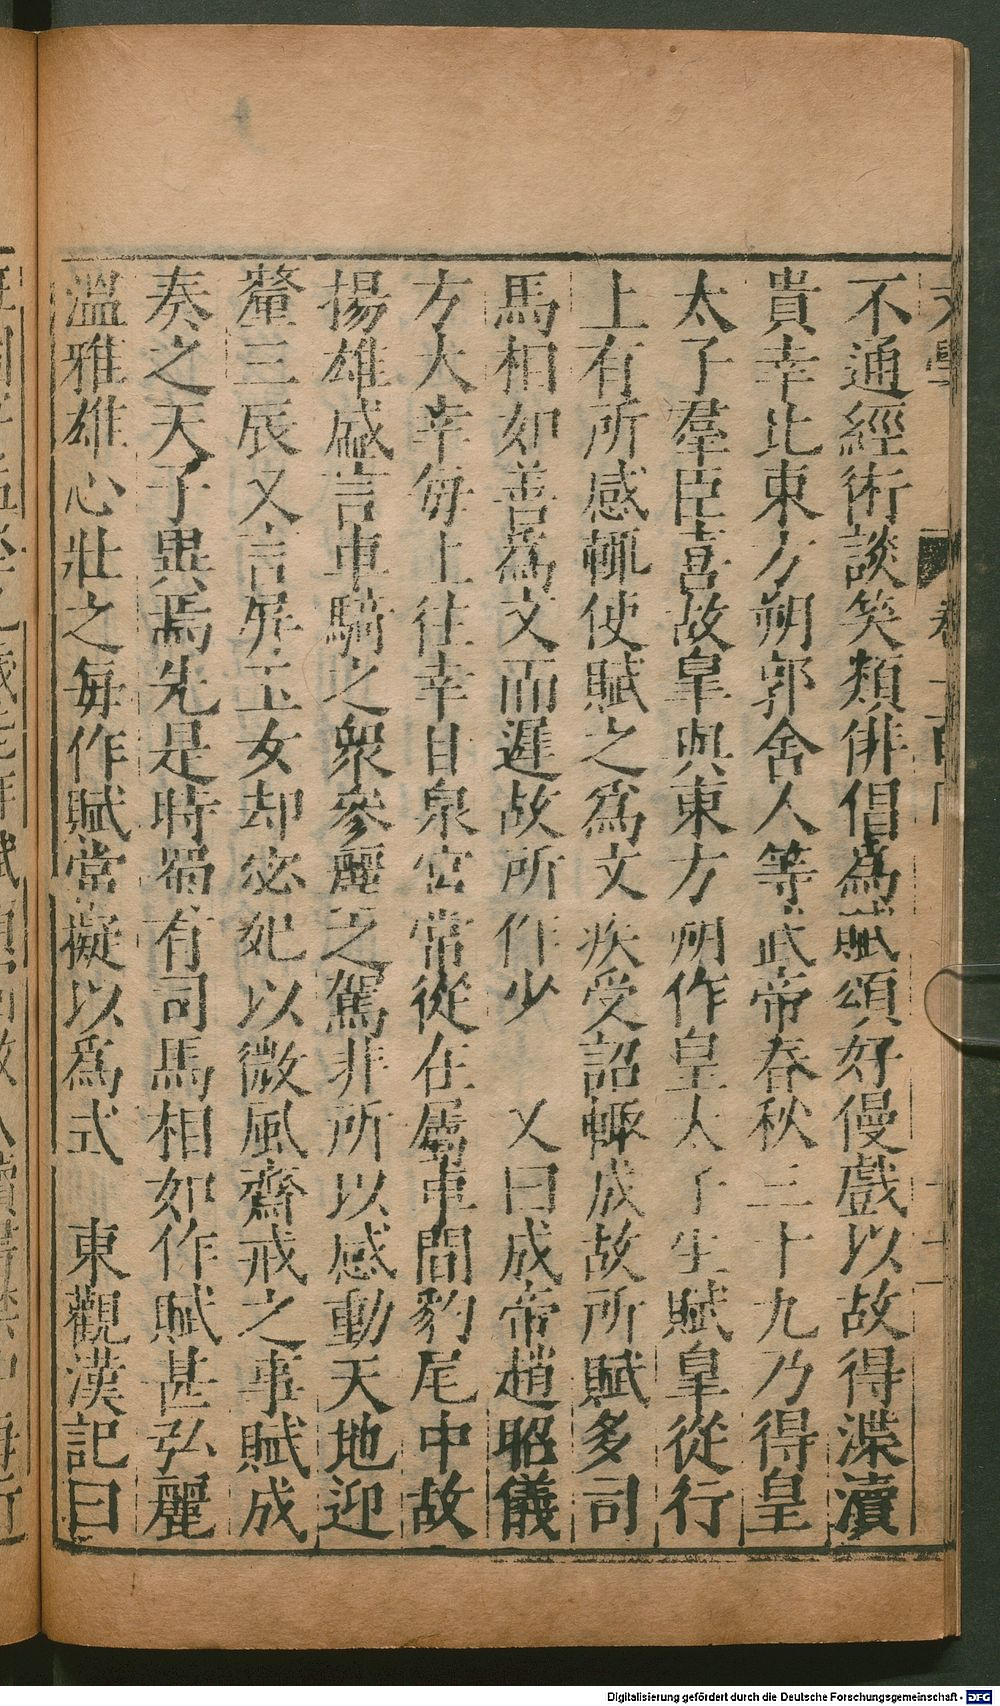 不通經術談笑類俳倡爲賦頌好慢戲以故得渫瀆
貴幸比東方朔郭舍人等武帝春秋二十九乃得皇
太子羣臣喜故皐與東方朔作皇太子生賦皐從行
上有所感輒使賦之爲文疾受詔輒成故所賦多司
馬相如善爲文而遲故所作少 又曰成帝趙昭儀
方大幸每上往幸自泉宮常從在屬車間豹尾中故
揚雄盛言車騎之衆參麗之駕非所以感動天地迎
釐三辰又言屛玉女却宓妃以微風齋戒之事賦成
奏之天子異焉先是時蜀有司馬相如作賦甚弘麗
溫雅雄心壯之每作賦常擬以爲式 東觀漢記曰
Digitalisierung gefördert durch die Deutsche Forschungsgemeinschaft - DFG